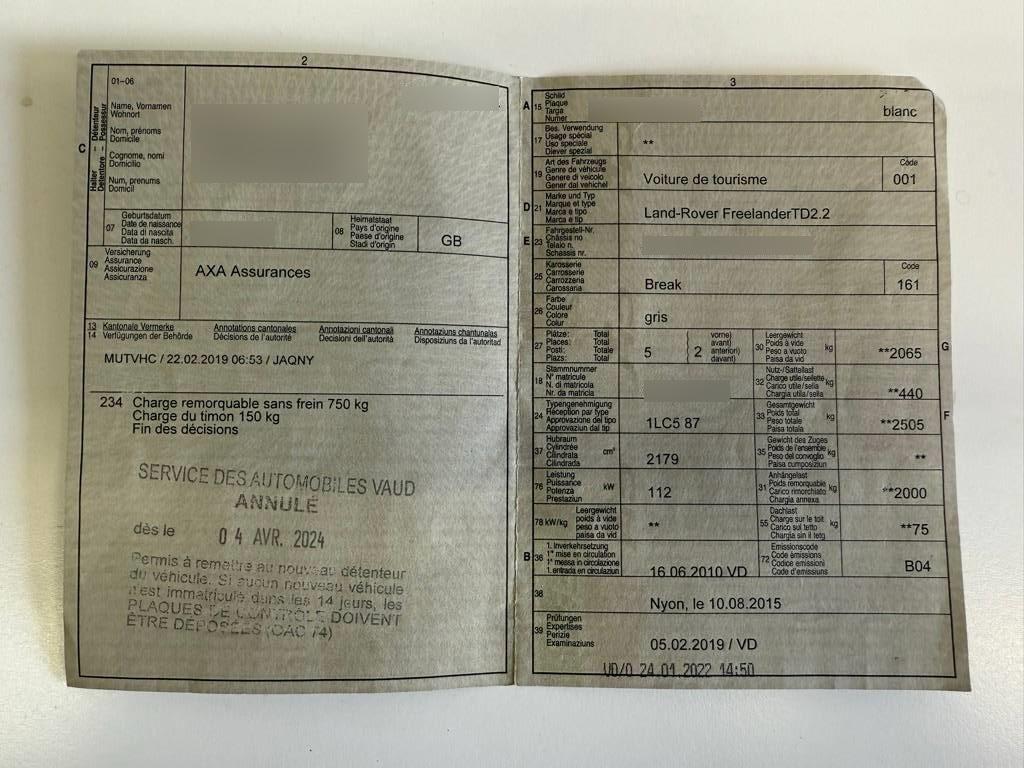 2
01–06
Name, Vornamen
Wohnort
Nom, prénoms
Domicile
Cognome, nomi
Domicilio
Num, prenums
Domicil
C
Halter – Détenteur
Detentore – Possessur
07
Geburtsdatum
Date de naissance
Data di nascita
Data da nasch.
08
Heimatstaat
Pays d'origine
Paese d'origine
Stadi d'origin
GB
09
Versicherung
Assurance
Assicurazione
Assicuranza
AXA Assurances
13 Kantonale Vermerke Annotations cantonales Annotazioni cantonali Annotaziuns chantunalas
14 Verfügungen der Behörde Décisions de l'autorité Decisioni dell'autorità Disposiziuns da l'autoritad
MUTVHC / 22.02.2019 06:53 / JAQNY
234 Charge remorquable sans frein 750 kg
Charge du timon 150 kg
Fin des décisions
SERVICE DES AUTOMOBILES VAUD
ANNULÉ
dès le 04 AVR. 2024
Permis à remettre au nouveau détenteur
du véhicule. Si aucun nouveau véhicule
n'est immatriculé dans les 14 jours, les
PLAQUES DE CONTRÔLE DOIVENT
ÊTRE DÉPOSÉES (OAC 74)
3
A 15
Schild
Plaque
Targa
Numer
blanc
17
Bes. Verwendung
Usage spécial
Uso speciale
Diever spezial
**
19
Art des Fahrzeugs
Genre de véhicule
Genere di veicolo
Gener dal vehichel
Voiture de tourisme
Code
001
D 21
Marke und Typ
Marque et type
Marca e tipo
Marca e tip
Land-Rover FreelanderTD2.2
E 23
Fahrgestell-Nr.
Châssis no
Telaio n.
Schassis nr.
25
Karosserie
Carrosserie
Carrozzeria
Carossaria
Break
Code
161
26
Farbe
Couleur
Colore
Colur
gris
27
Plätze: Total
Places: Total
Posti: Totale
Plazs: Total
5
2
vorne)
avant)
anteriori)
davant)
30
Leergewicht
Poids à vide
Peso a vuoto
Paisa da vid
kg
**2065
G
18
Stammnummer
N° matricule
N. di matricola
Nr. da matricla
32
Nutz-/Sattellast
Charge utile/sellette
Carico utile/sella
Chargia utila/sella
kg
**440
24
Typengenehmigung
Réception par type
Approvazione del tipo
Approvaziun dal tip
1LC5 87
33
Gesamtgewicht
Poids total
Peso totale
Paisa totala
kg
**2505
F
37
Hubraum
Cylindrée
Cilindrata
Cilindrada
cm³
2179
35
Gewicht des Zuges
Poids de l'ensemble
Peso del convoglio
Paisa cumposiziun
kg
**
76
Leistung
Puissance
Potenza
Prestaziun
kW
112
31
Anhängelast
Poids remorquable
Carico rimorchiato
Chargia annexa
kg
**2000
78 kW/kg
Leergewicht
poids à vide
peso a vuoto
paisa da vid
**
55
Dachlast
Charge sur le toit
Carico sul tetto
Chargia sin il tetg
kg
**75
B 36
1. Inverkehrsetzung
1re mise en circulation
1a messa in circolazione
1. entrada en circulaziun
16.06.2010 VD
72
Emissionscode
Code émissions
Codice emissioni
Code d'emissiuns
B04
38
Nyon, le 10.08.2015
39
Prüfungen
Expertises
Perizie
Examinaziuns
05.02.2019 / VD
VD/0 24.01.2022 14:50